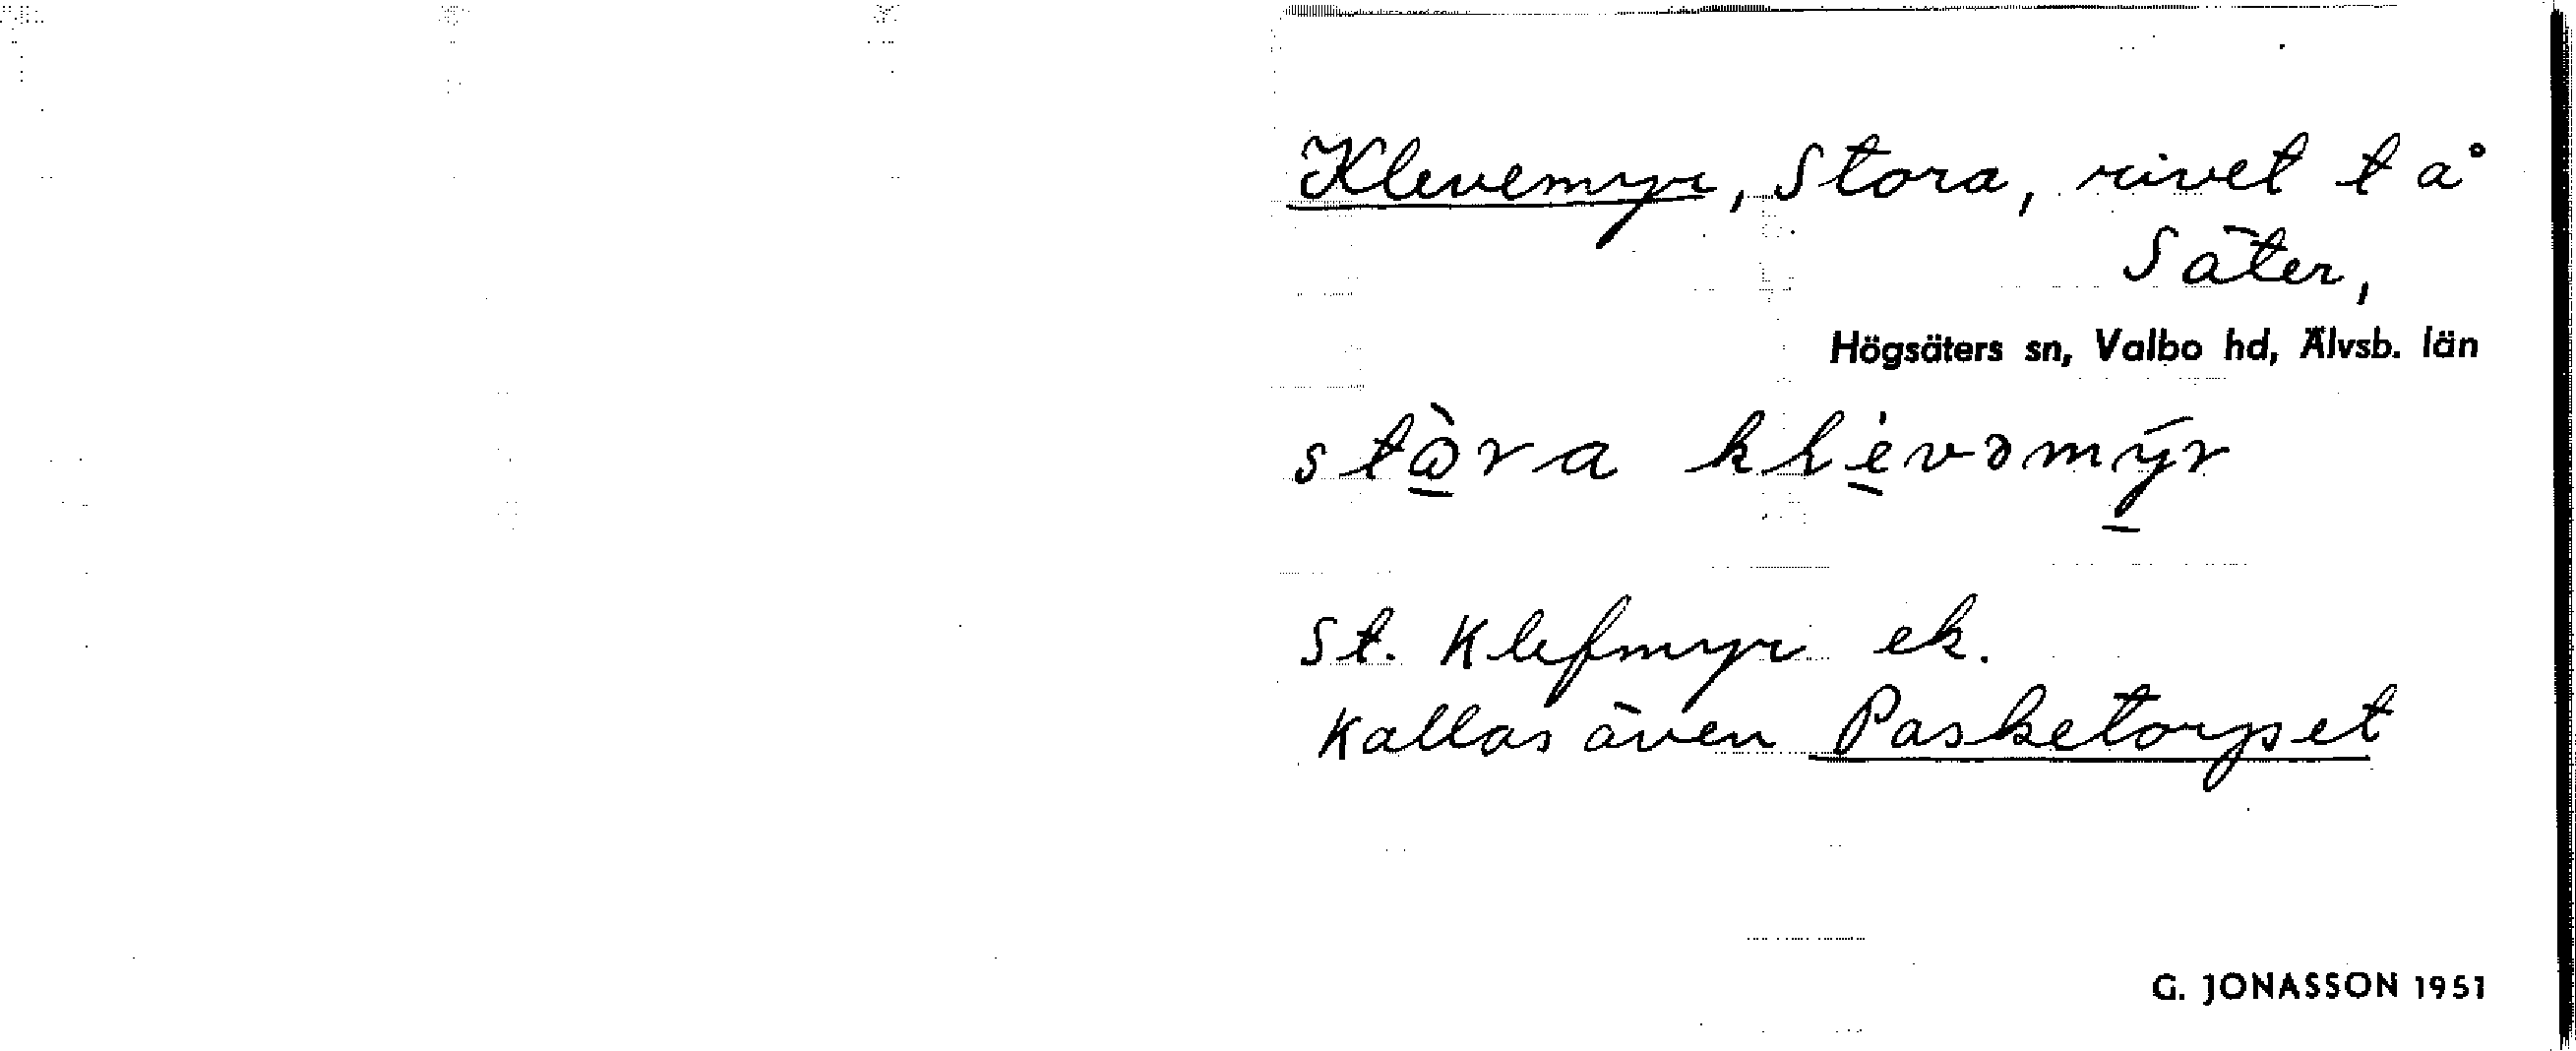 Klevemyr, Stora, rivet t å
Säter,
Högsäters sn, Valbo hd, Älvsb. län
stɷ̀ra klèvəmýr
St. Klefmyr ek.
Kallas även Pasketorpet
G. JONASSON 1951